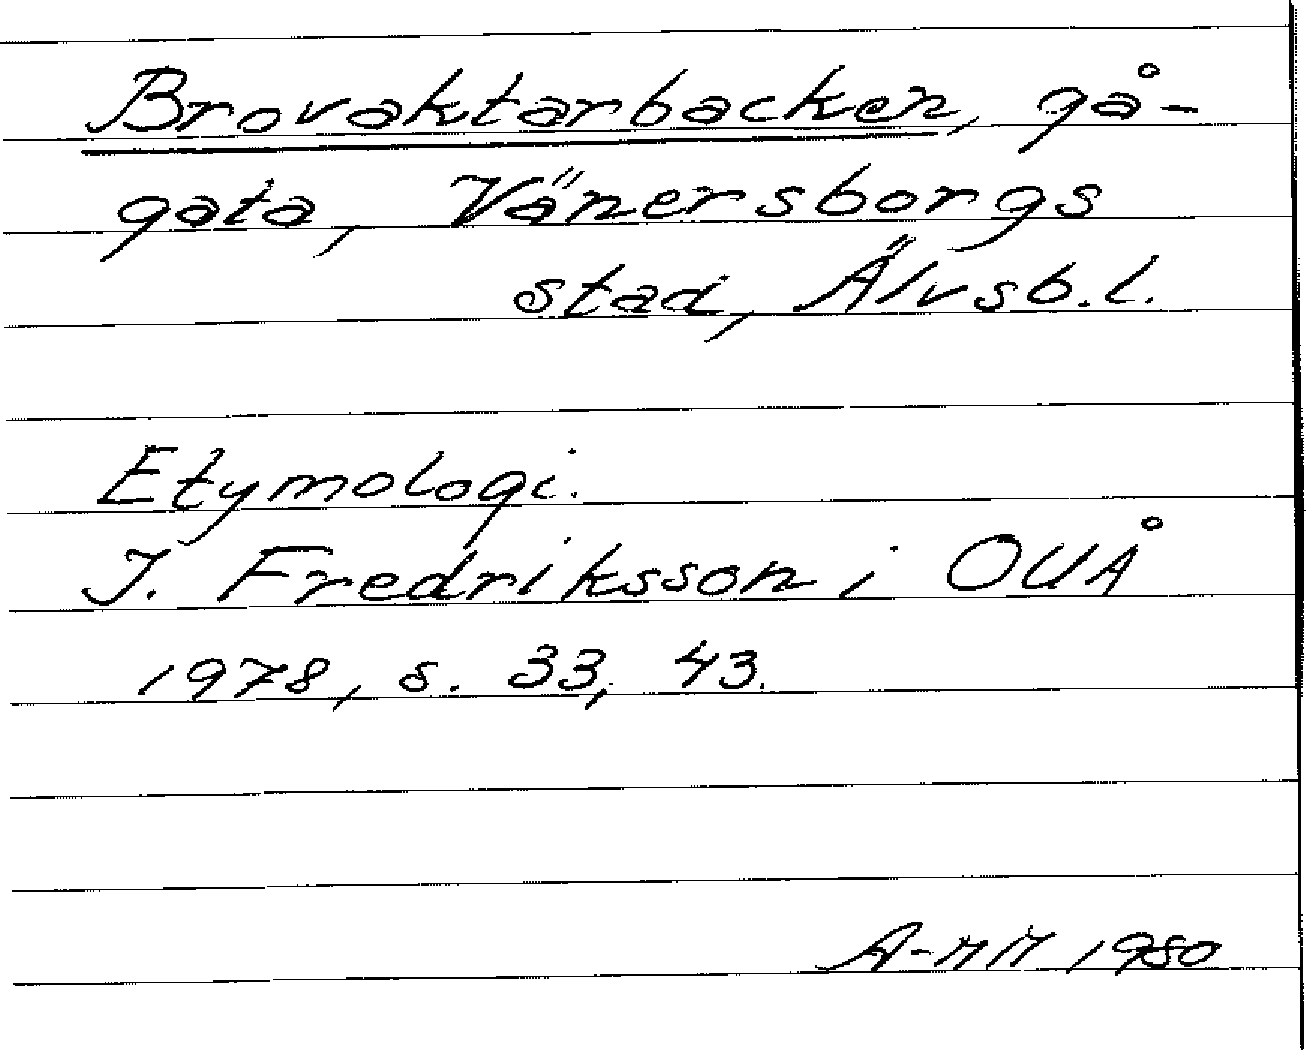 Brovaktarbacken, gå-
gata, Vänersborgs
stad, Älvsb.l.
Etymologi.
I. Fredriksson i OUÅ
1978, s. 33, 43.
A-MH 1980